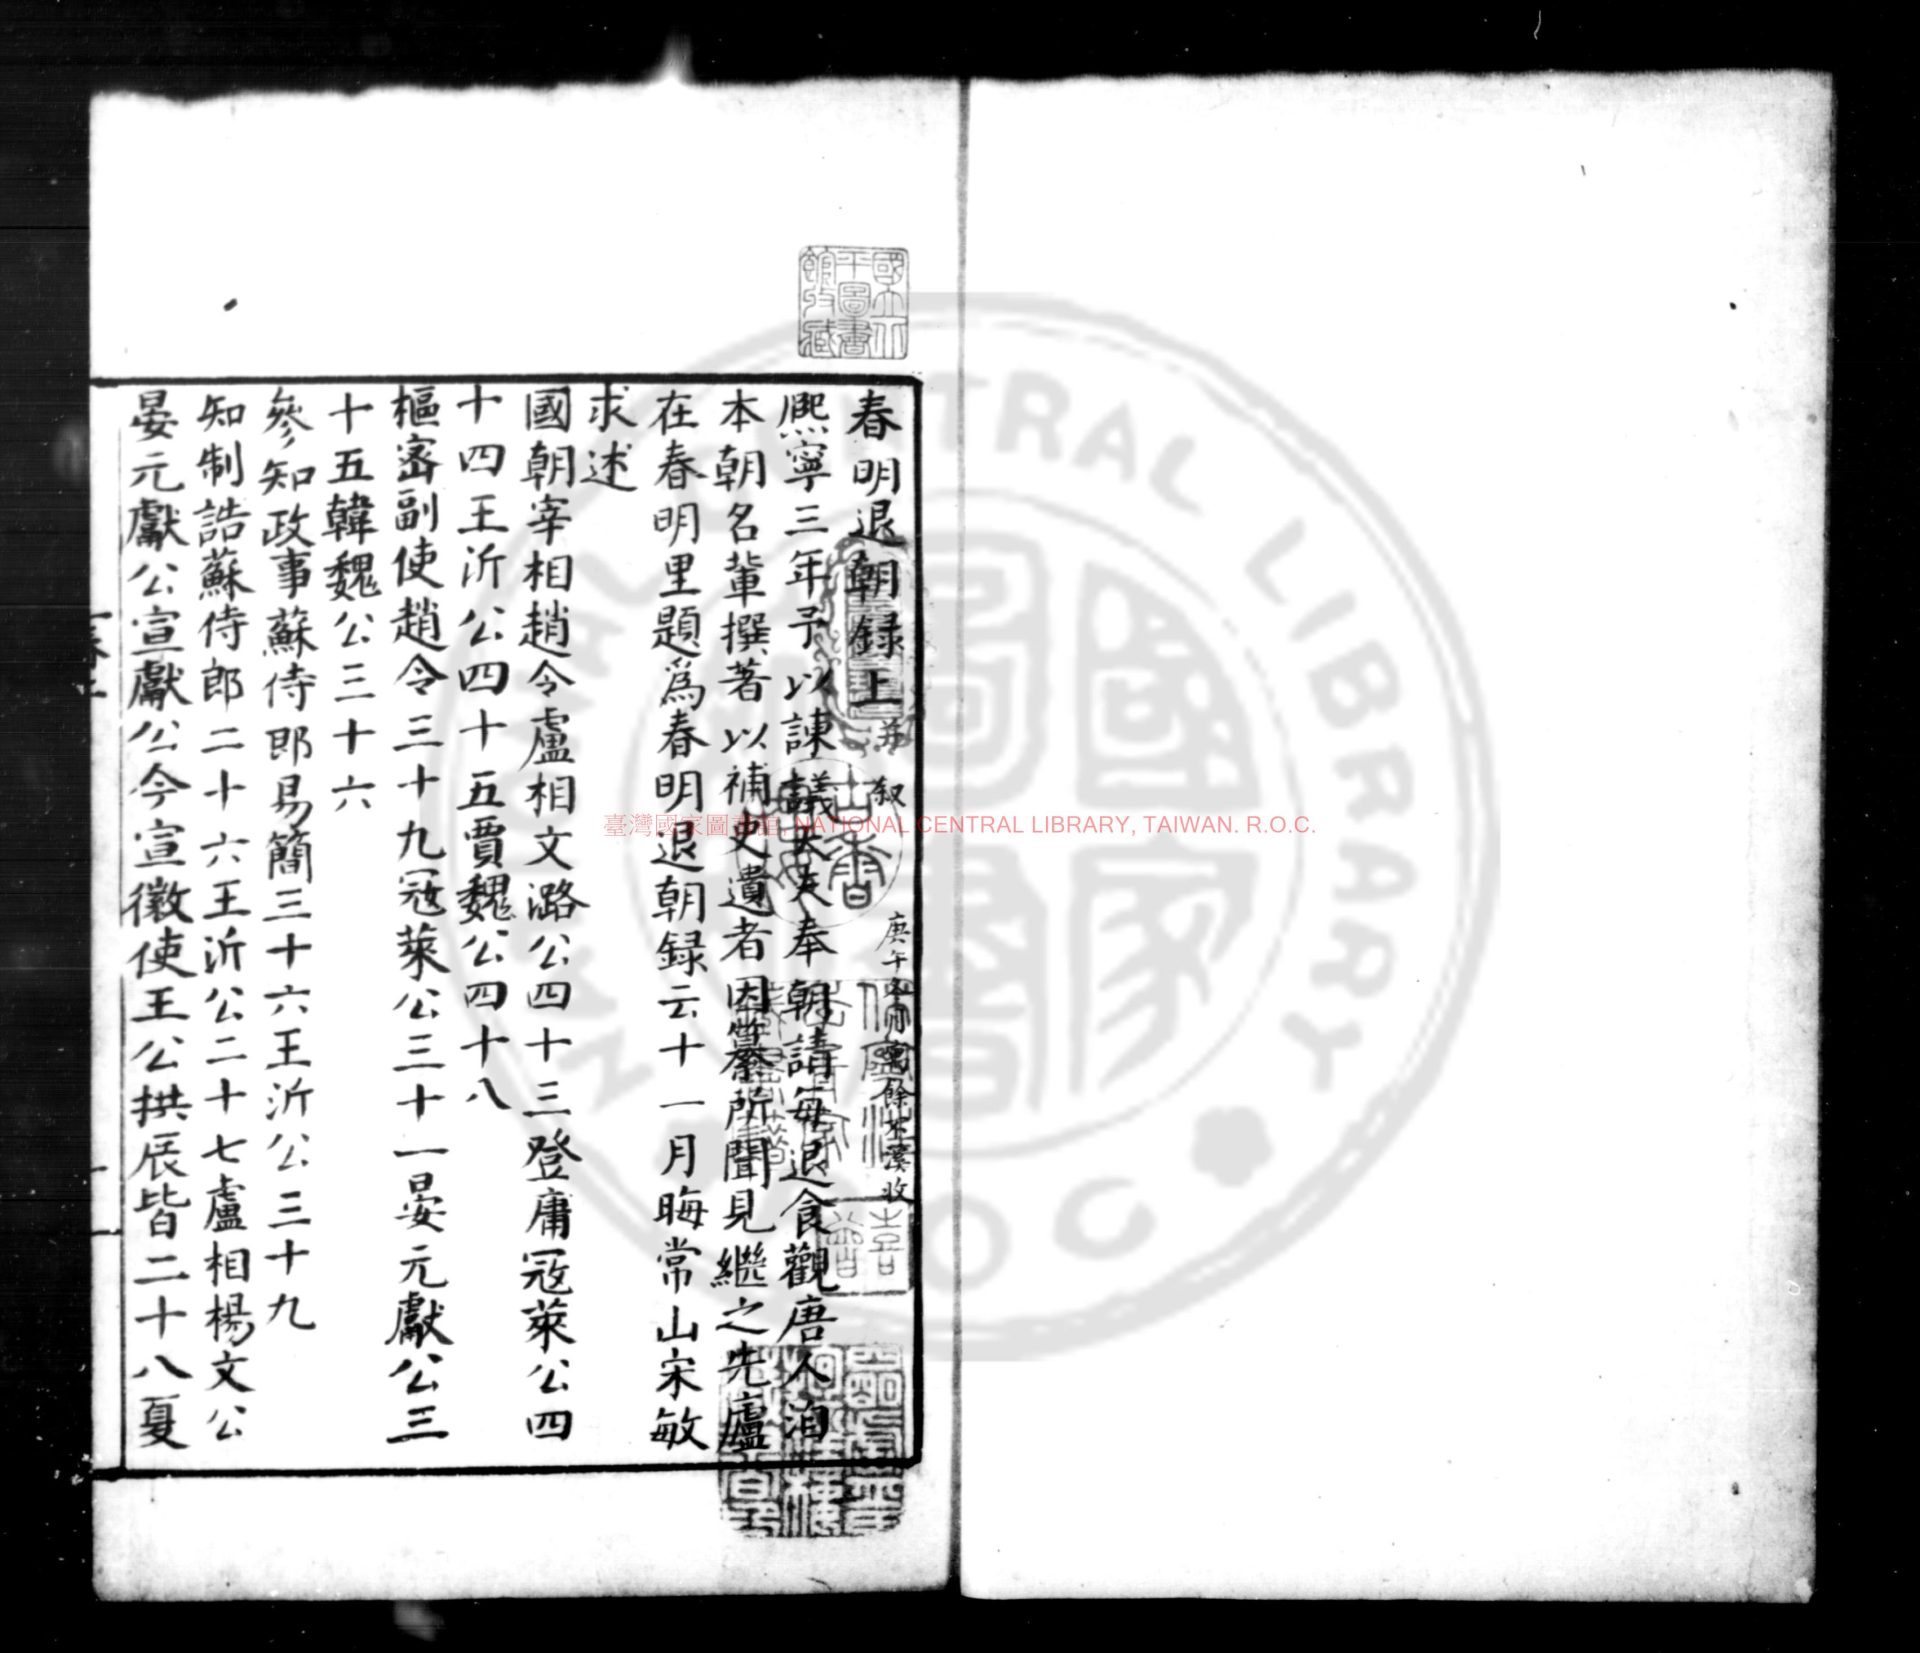 春明退朝録上 并叙
庚午 餘 溪收
熈寧三年予以諌議大夫奉朝請毎退食觀唐人洎
本朝名輩撰著以補史遺者因纂所聞見繼之先廬
在春明里題爲春明退朝録云十一月晦常山宋敏
求述
國朝宰相趙令盧相文潞公四十三登庸冦萊公四
十四王沂公四十五賈魏公四十八
樞宻副使趙令三十九冦萊公三十一晏元獻公三
十五韓魏公三十六
叅知政事蘇侍郎易簡三十六王沂公三十九
知制誥蘇侍郎二十六王沂公二十七盧相楊文公
晏元獻公宣獻公今宣徽使王公拱辰皆二十八夏
國立北平圖書館收藏
臺灣國家圖書館, NATIONAL CENTRAL LIBRARY, TAIWAN. R.O.C.